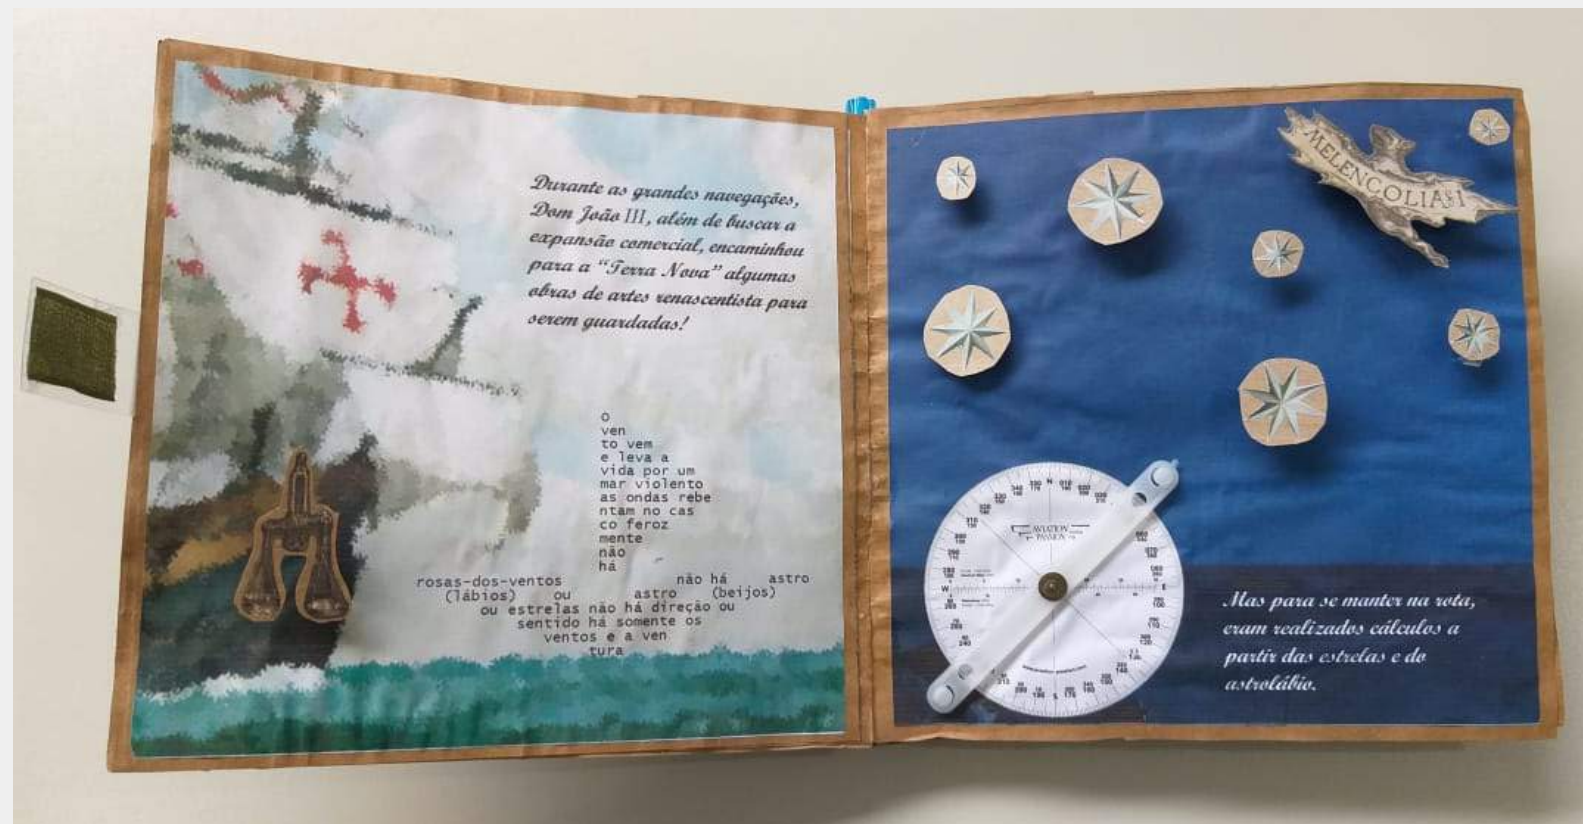 Durante as grandes navegações,
Dom João III, além de buscar a
expansão comercial, encaminhou
para a “Terra Nova” algumas
obras de artes renascentista para
serem guardadas!
o
ven
to vem
e leva a
vida por um
mar violento
as ondas rebe
ntam no cas
co feroz
mente
não
há
rosas-dos-ventos não há astro
(lábios) ou astro (beijos)
ou estrelas não há direção ou
sentido há somente os
ventos e a ven
tura
MELENCOLIA§I
N
AVIATION
PASSION
W
E
S
Mas para se manter na rota,
eram realizados cálculos a
partir das estrelas e do
astrolábio.